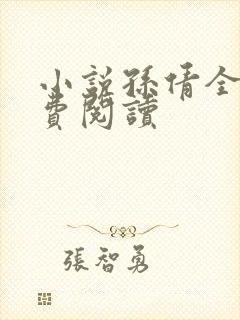 小說孫倩全
費閱讀
張智勇